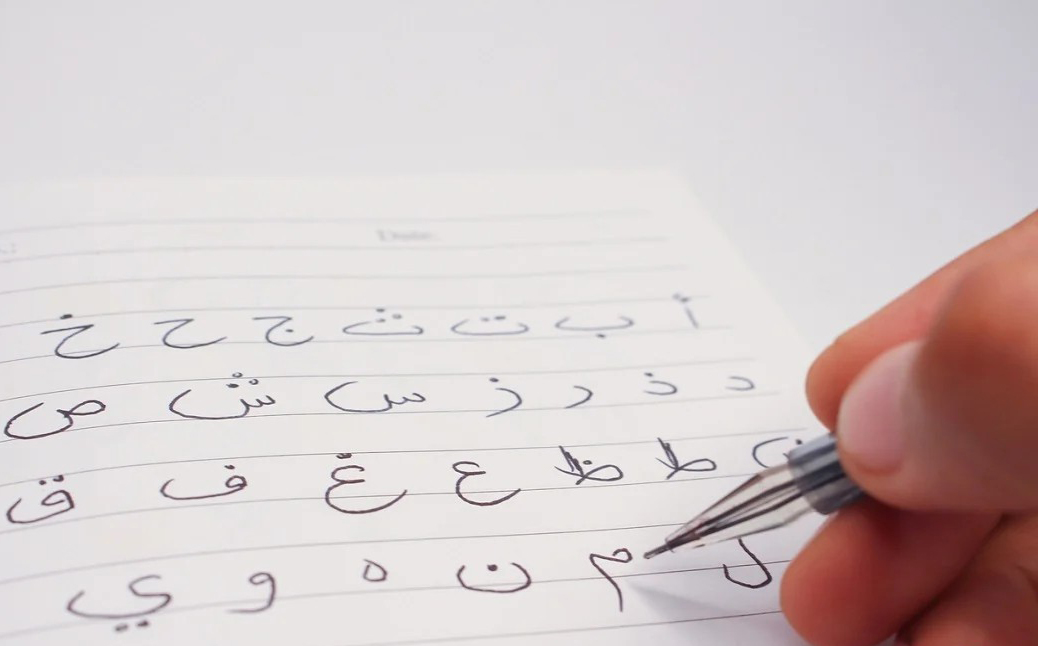 Date:
أ ب ت ث ج ح خ
د ذ ر ز س ش ص
ط ظ ع غ ف ق
ل م ن ه و ي